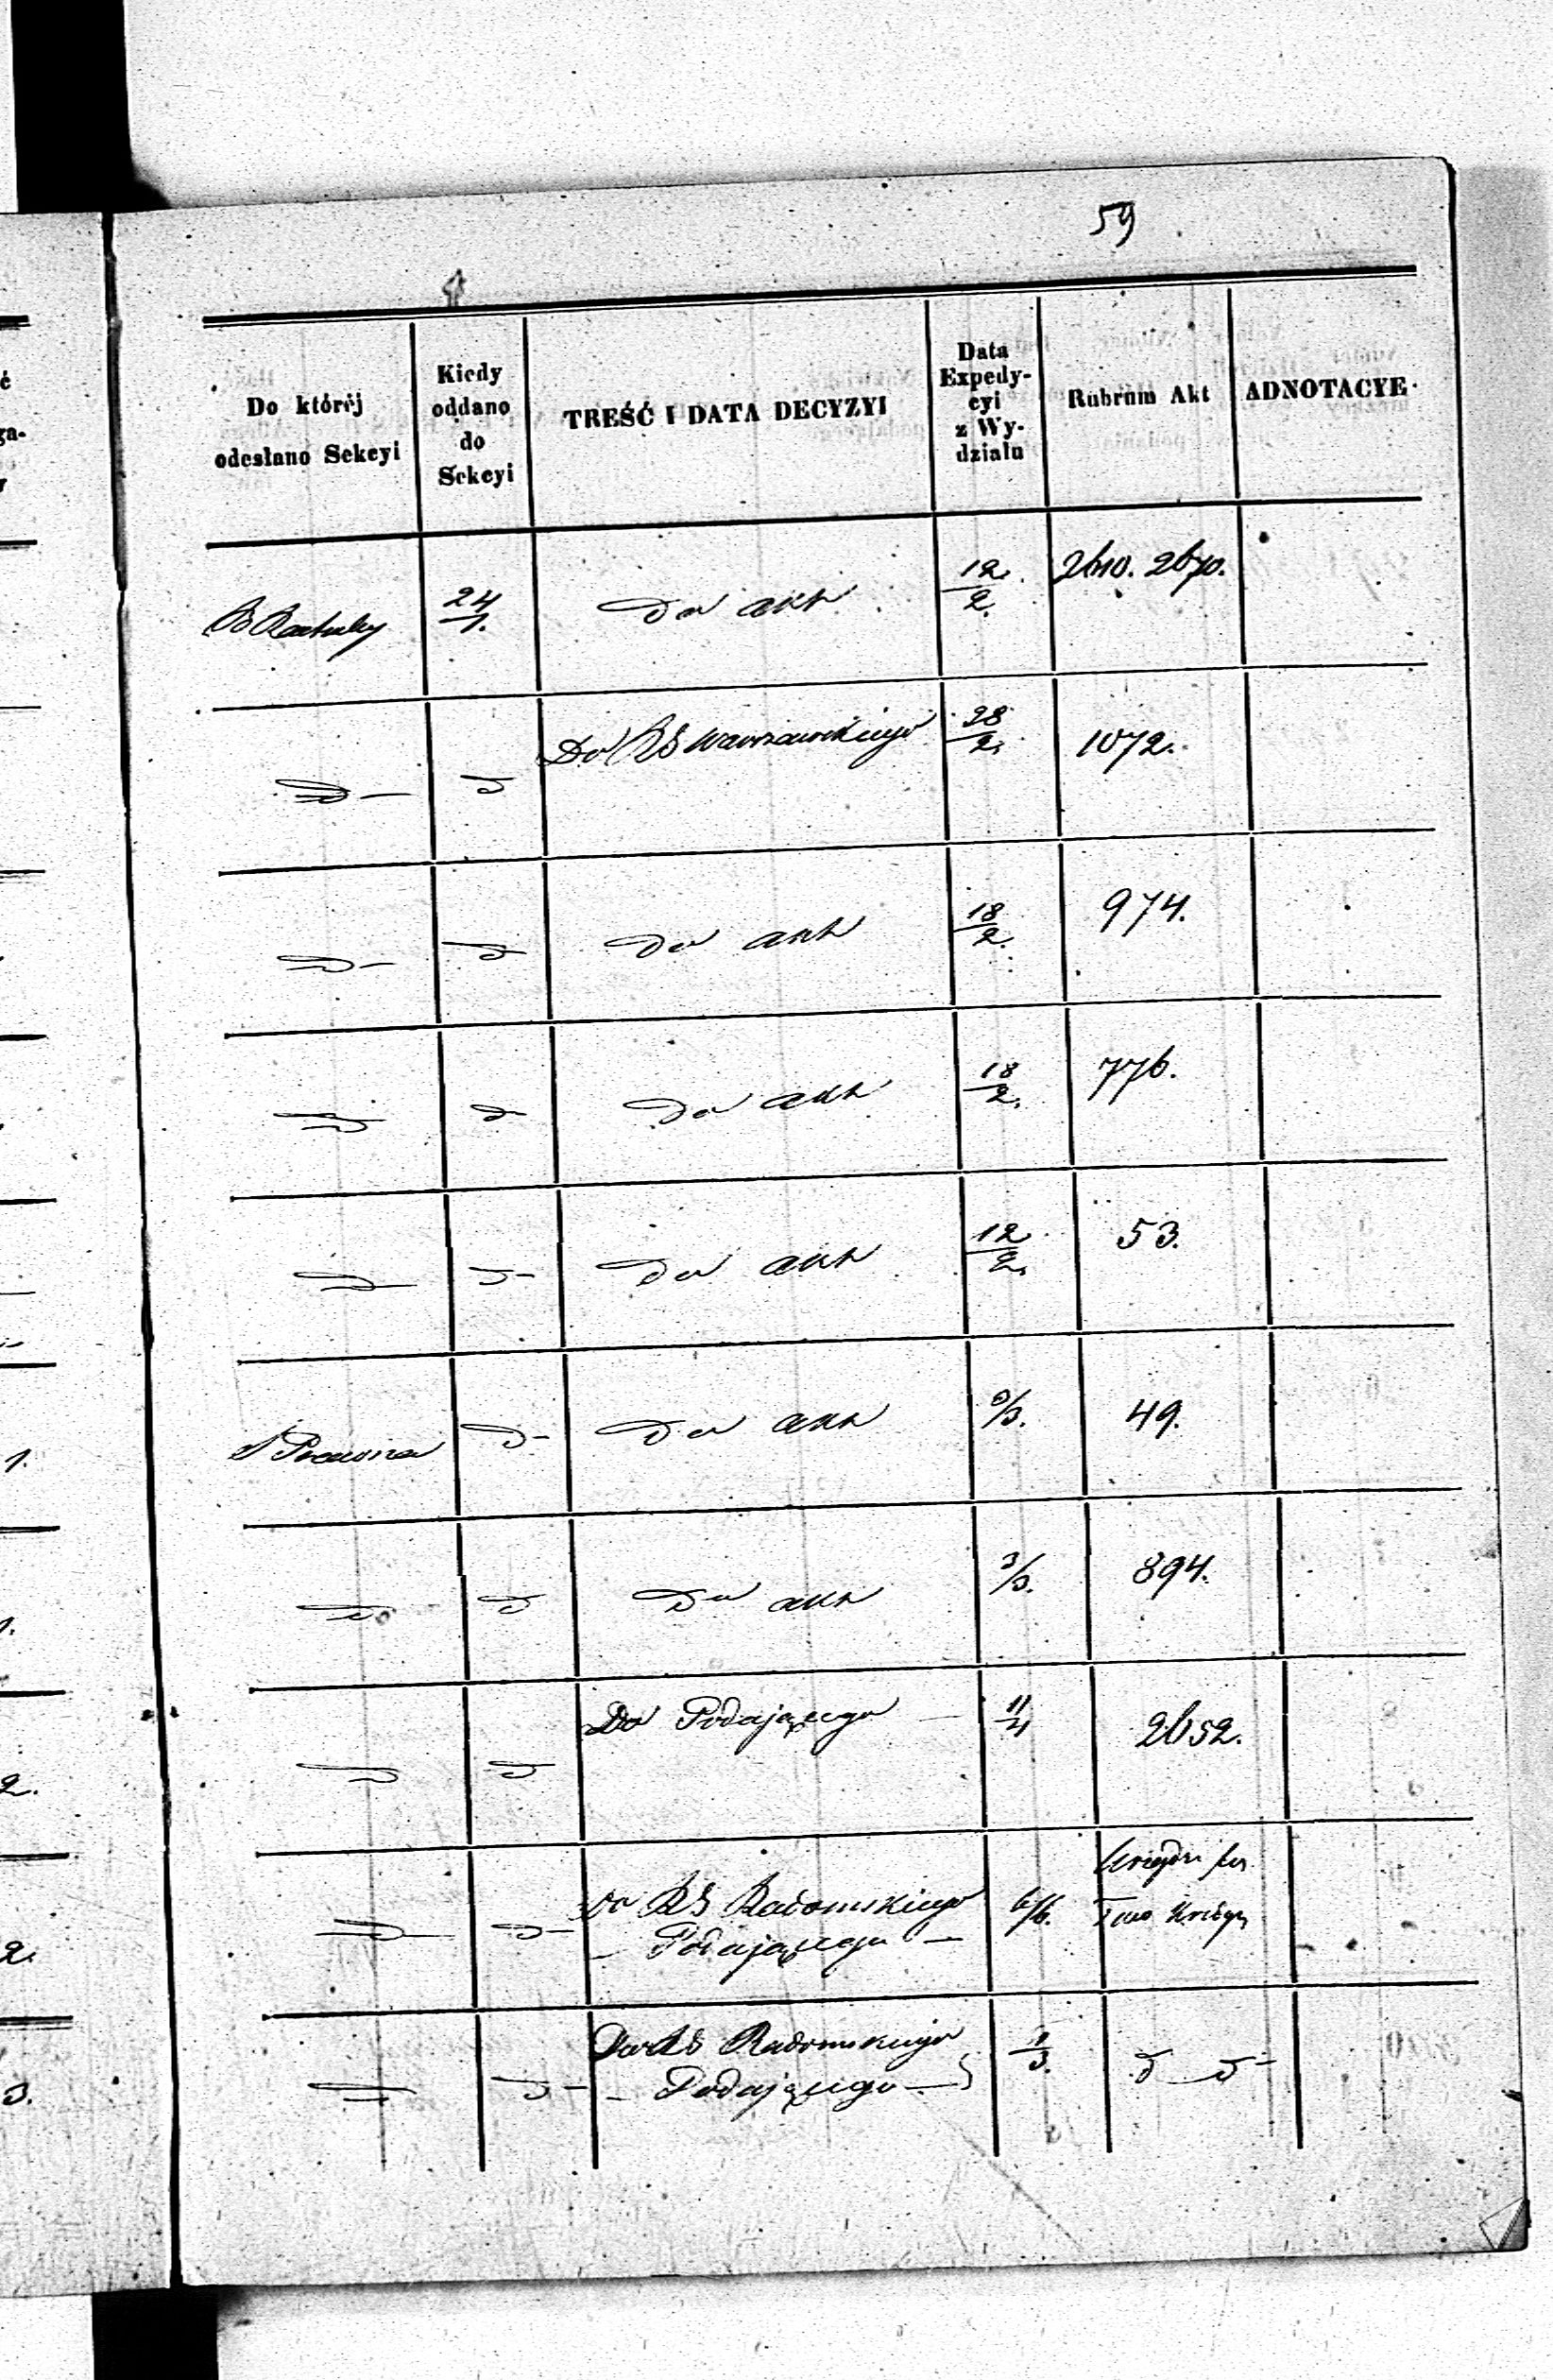 59
Do któréj odesłano Sekcyi
Kiedy oddano do Sekcyi
TREŚĆ I DATA DECYZYI
Data Expedycyi z Wydziału
Rubrum Akt
ADNOTACYE
24/1. Do akt 12/2. 2610. 2670.
Do RG Warszawskiego 28/2. 1072.
Do akt 18/2. 974.
Do akt 18/2. 776.
Do akt 12/2. 53.
Do akt 49.
Do akt 3/3. 894.
Do Podającego — 11/4 2652.
Do RG Radomskiego 6/6.
— Podającego —
Do RG Radomskiego 1/3.
— Podającego —